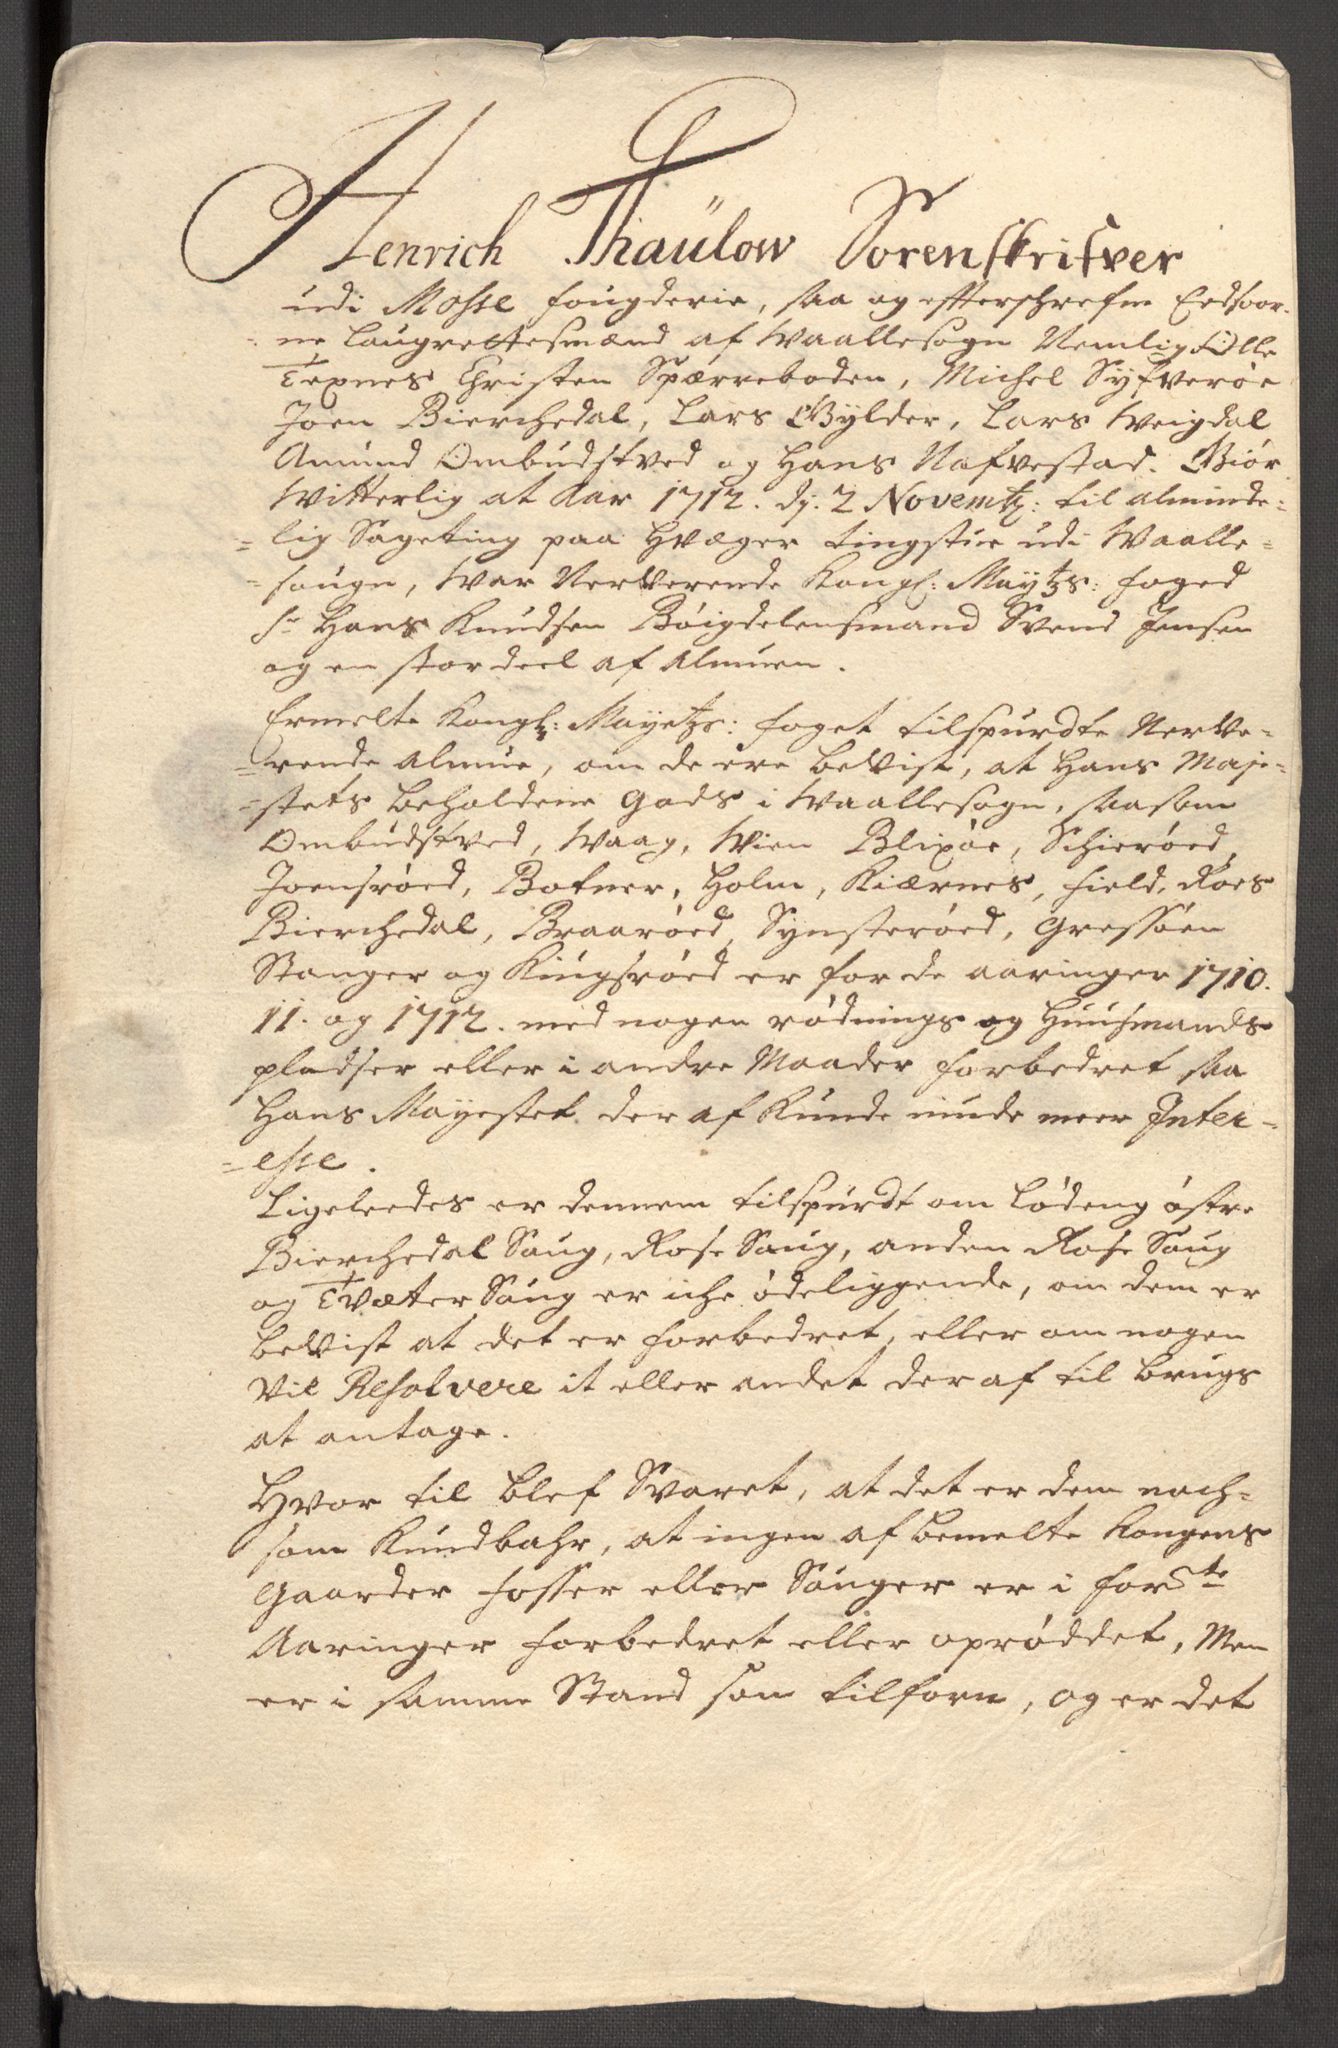 Henrich Thaülow Sorenskrifver
udi Mosse fougderie, saa og effterschrefne Eedsoor-
ne Laugrettesmænd af Waallesogn Nemlig Olle
Texnes Christen Spærreboden, Michel Syfverøe
Joen Bierchedal, Lars Gylder, Lars Weigdal
Amund Ombudstved og Hans Nafvestad. Giør
Witterlig at Aar 1712. dj. 2 Novemb: til alminde-
lig Sageting paa Hvæger tingstue udi Waalle-
sougn, War Nerverende Kongl: Maytz: foged
Sr Hans Knudsen Bøigdelensmand Svend Jensen
og en stor deel af Almuen.
Ermelte Kongl: Mayetz: foget tilspurdte Nerve-
rende Almue, om de ere beVist, at Hans Maje-
stets beholdene Gods i Waallesogn, saasom
Ombudstved, Waag, Wien Blixøe, Schierøed,
Joensrøed, Botner, Holm, Kiærnes, field, Roes
Bierchedal, Braarøed, Synsterøed, Gressøen
Stanger og Kiugsrøed er for de aaringer 1710.
11. og 1712. med nogen rødnings og Huusmands
pladser eller i andre Maader forbedret saa
Hans Mayestet der af Kunde nude meer Inter-
esse.
Ligeleedes er dennem tilspurdt om Lødeng østre
Bierchedal Saug, Rose Saug, anden Rose Saug
og Tvæter Saug er iche ødeliggende, om dem er
beVist at det er forbedret, eller om nogen
Vil Resolvere it eller andet der af til brugs
at antage.
Hvor til blef Svaret, at det er dem noch-
som Kundbahr, at ingen af bemelte Kongens
Gaarder fosser eller Sauger er i forste
Aaringer forbedret eller oprøddet, Men
er i samme Stand som tilforn, og er det